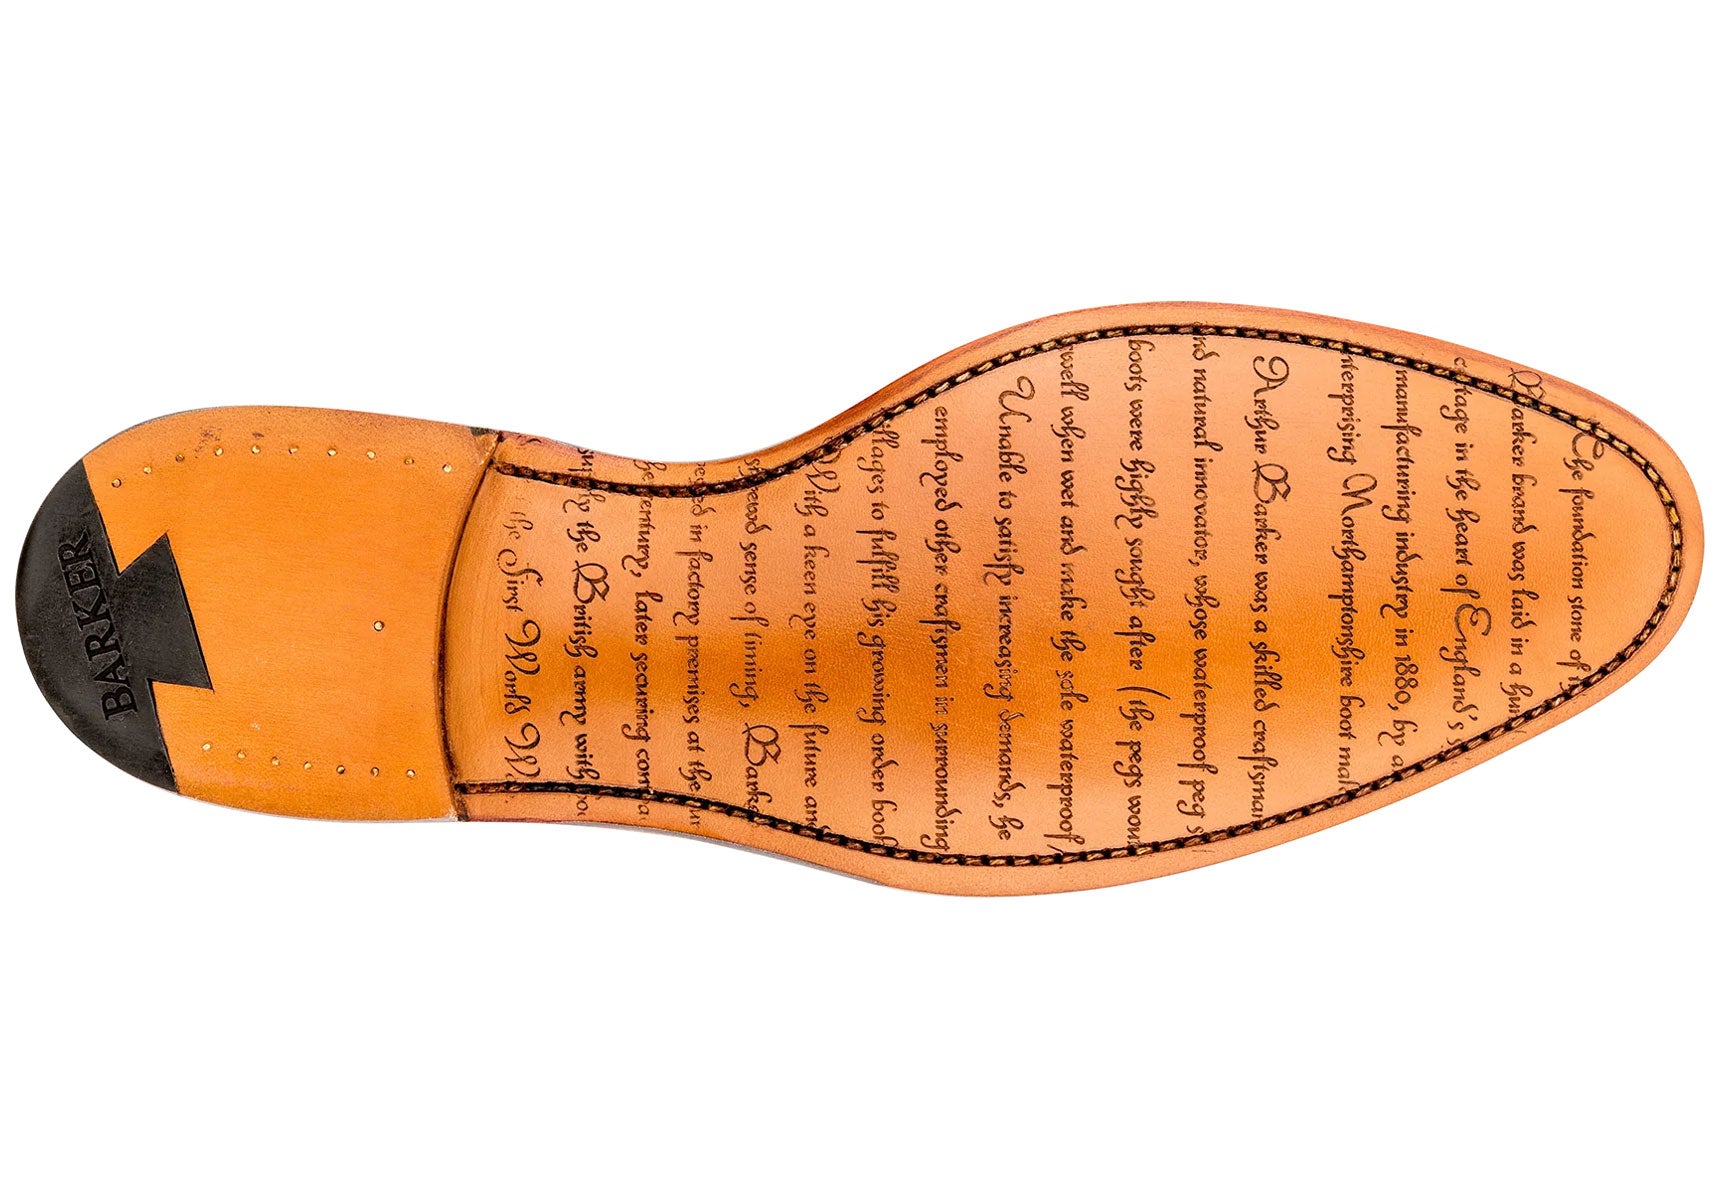 The foundation stone of
Barker brand was laid in a
cottage in the heart of England's
manufacturing industry in 1880, by
Northamptonshire boot
Arthur Barker was a skilled
natural innovator, whose waterproof peg
boots were highly sought after (the pegs
well when wet and make the sole waterproof
Unable to satisfy increasing demands, he
employed other craftsmen in surrounding
to fulfill his growing order
With a keen eye on the future
sense of timing,
in factory premises at the
century, later securing
the British army with
the First World
BARKER